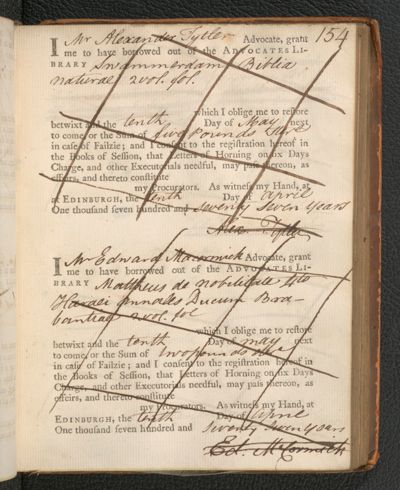 154
I Mr Alexander Tytler Advocate, grant
me to have borrowed out of the ADVOCATES LI-
BRARY Swammerdam Biblia
naturae 2 vol. fol.
which I oblige me to reſtore
betwixt and the tenth Day of May next
to come, or the Sum of two pounds Ster
in caſe of Failzie; and I conſent to the regiſtration hereof in
the Books of Seſſion, that Letters of Horning on ſix Days
Charge, and other Executorials needful, may paſs hereon, as
effeirs, and thereto conſtitute
my Procurators. As witneſs my Hand, at
at EDINBURGH, the tenth Day of April
One thouſand ſeven hundred and Seventy Seven Years
Alex Tytler
I Mr Edward Macormick Advocate, grant
me to have borrowed out of the ADVOCATES LI-
BRARY Mattheus de nobilitate 4to
Haraei annales Ducum Bra-
bantiae 2 vol. fol
which I oblige me to reſtore
betwixt and the tenth Day of may next
to come, or the Sum of two pounds
in caſe of Failzie; and I conſent to the regiſtration hereof in
the Books of Seſſion, that Letters of Horning on ſix Days
Charge, and other Executorials needful, may paſs thereon, as
effeirs, and thereto conſtitute
my Procurators. As witneſs my Hand, at
EDINBURGH, the tenth Day of aprile
One thouſand ſeven hundred and Seventy Seven years
Ed. McCormick